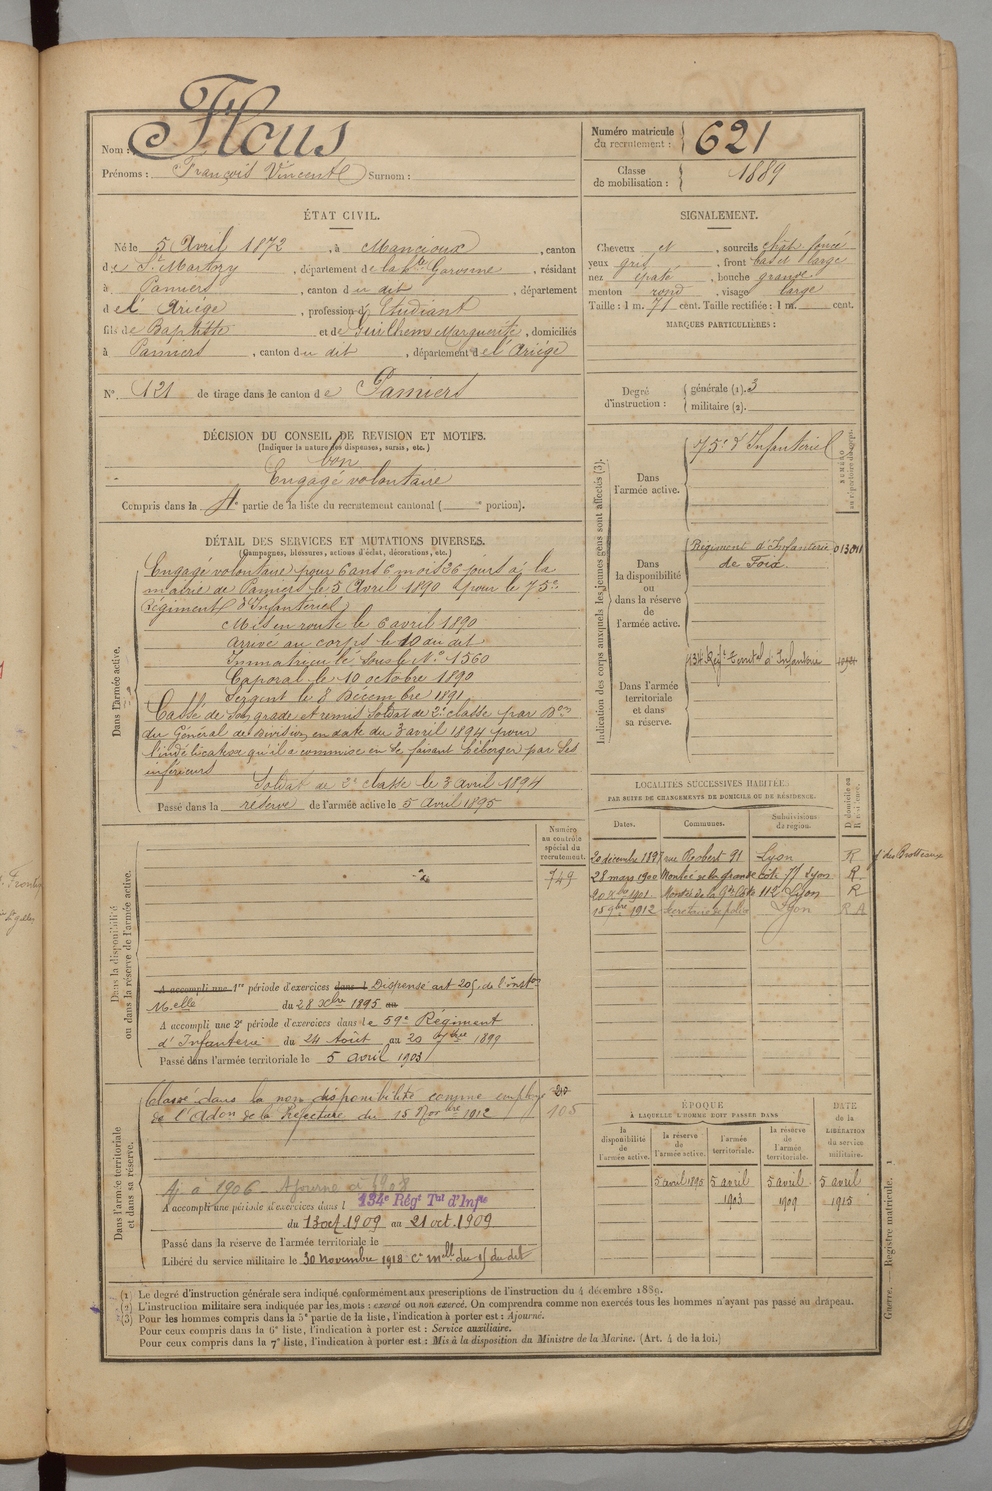 Nom : Flous
Prénoms : François Vincent Surnom :
Numéro matricule du recrutement : 621
Classe de mobilisation : 1889
ÉTAT CIVIL.
Né le 5 Avril 1872, à Mancioux, canton
de St Martory, département de la Hte Garonne, résidant
à Pamiers, canton du dit, département
de l'Ariège, profession d'Etudiant
fils de Baptiste et de Guilhem Marguerite, domiciliés
à Pamiers, canton du dit, département de l'Ariège
N° 121 de tirage dans le canton de Pamiers
SIGNALEMENT.
Cheveux et, sourcils chât. foncé
yeux gris, front bas et large
nez épaté, bouche grande
menton rond, visage large
Taille : 1 m. 71 cent. Taille rectifiée : 1 m. cent.
MARQUES PARTICULIÈRES :
Degré d'instruction :
générale (1). 3
militaire (2).
DÉCISION DU CONSEIL DE REVISION ET MOTIFS.
(Indiquer la nature des dispenses, sursis, etc.)
bon
Engagé volontaire
Compris dans la 4e partie de la liste du recrutement cantonal ( e portion).
DÉTAIL DES SERVICES ET MUTATIONS DIVERSES.
(Campagnes, blessures, actions d'éclat, décorations, etc.)
Dans l'armée active.
Engagé volontaire pour 6 ans 6 mois 26 jours à la
mairie de Pamiers le 5 Avril 1890 pour le 75e
Régiment d'Infanterie
Mis en route le 6 avril 1890
Arrivé au corps le 10 du dit
Immatriculé sous le N° 1560
Caporal le 10 octobre 1890
Sergent le 8 Décembre 1891
Cassé de son grade et remis soldat de 2e classe par Don
du Général de Division en date du 3 avril 1894 pour
l'indélicatesse qu'il a commise en se faisant héberger par ses
inférieurs
Soldat de 2e classe le 3 Avril 1894
Passé dans la réserve de l'armée active le 5 Avril 1895
Indication des corps auxquels les jeunes gens sont affectés (3).
NUMÉRO au répertoire du corps.
Dans l'armée active.
75e d'Infanterie
Dans la disponibilité ou dans la réserve de l'armée active.
Régiment d'Infanterie 013011
de Foix.
Dans l'armée territoriale et dans sa réserve.
134e Régt Territal d'Infanterie
LOCALITÉS SUCCESSIVES HABITÉES
PAR SUITE DE CHANGEMENTS DE DOMICILE OU DE RÉSIDENCE.
Dates. Communes. Subdivisions de région. D domicile ou R résidence.
20 décembre 1897 rue Robert 91 Lyon R
28 mars 1900 Montée de la grande côte 77 Lyon R
20 Xbre 1901 Montée de la Gde Côte 112 Lyon R
15 9bre 1912 Secrétaire de police Lyon R A
Dans la disponibilité ou dans la réserve de l'armée active.
Numéro au contrôle spécial du recrutement.
749
A accompli une 1re période d'exercices dans l Dispensé art 205 de l'inston
Melle du 28 Xbre 1895 au
A accompli une 2e période d'exercices dans le 59e Régiment
d'Infanterie du 24 Août au 20 7bre 1899
Passé dans l'armée territoriale le 5 avril 1903
Dans l'armée territoriale et dans sa réserve.
Classé dans la non disponibilité comme employé
de l'Adon de la Préfecture du 15 Novbre 1912
105
Aj. à 1906 - Ajourné à 1908
A accompli une période d'exercices dans l 134e Régt Tal d'Infie
du 13 oct. 1909 au 21 oct. 1909
Passé dans la réserve de l'armée territoriale le
Libéré du service militaire le 30 novembre 1918 Ce melle du 15 du dit
ÉPOQUE
À LAQUELLE L'HOMME DOIT PASSER DANS
DATE de la LIBÉRATION du service militaire.
la disponibilité de l'armée active.
la réserve de l'armée active.
l'armée territoriale.
la réserve de l'armée territoriale.
5 avril 1895 5 avril 1903 5 avril 1909 5 avril 1915
(1) Le degré d'instruction générale sera indiqué conformément aux prescriptions de l'instruction du 4 décembre 1889.
(2) L'instruction militaire sera indiquée par les mots : exercé ou non exercé. On comprendra comme non exercés tous les hommes n'ayant pas passé au drapeau.
(3) Pour les hommes compris dans la 5e partie de la liste, l'indication à porter est : Ajourné.
Pour ceux compris dans la 6e liste, l'indication à porter est : Service auxiliaire.
Pour ceux compris dans la 7e liste, l'indication à porter est : Mis à la disposition du Ministre de la Marine. (Art. 4 de la loi.)
Guerre. — Registre matricule. 1